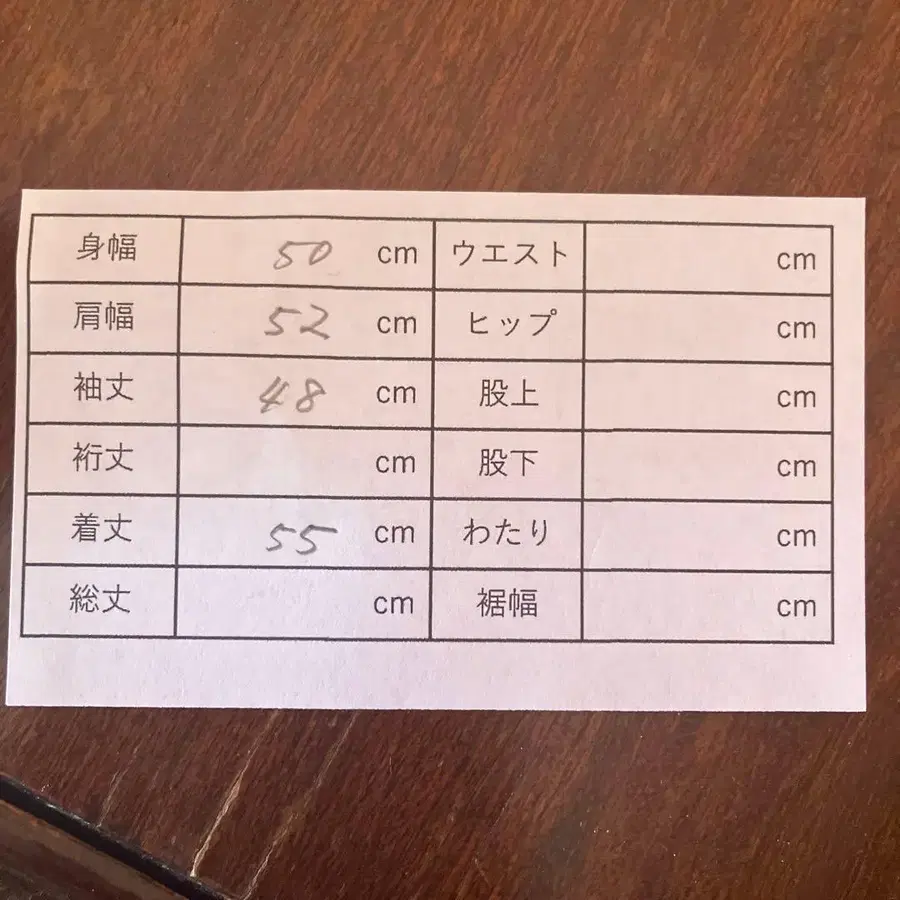 身幅 50 cm ウエスト cm
肩幅 52 cm ヒップ cm
袖丈 48 cm 股上 cm
裄丈 cm 股下 cm
着丈 55 cm わたり cm
総丈 cm 裾幅 cm